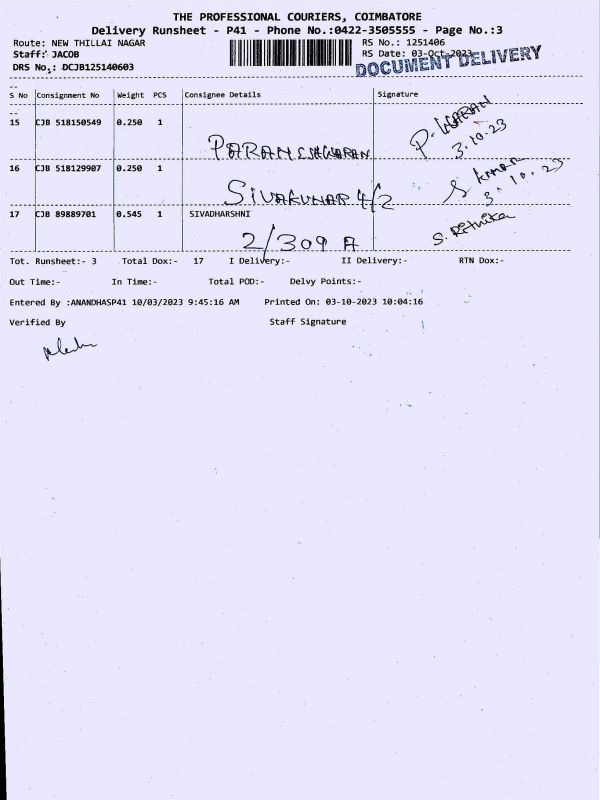 THE PROFESSIONAL COURIERS, COIMBATORE
Delivery Runsheet - P41 - Phone No.:0422-3505555 - Page No.:3
Route: NEW THILLAI NAGAR RS No.: 1251406
Staff: JACOB RS Date: 03-Oct-2023
DRS No.: DCJB125140603 DOCUMENT DELIVERY
--
S No Consignment No Weight PCS Consignee Details Signature
--
15 CJB 518150549 0.250 1
3.10.23
16 CJB 518129907 0.250 1
SIVAKUMAR 4/2 3.10.23
17 CJB 89889701 0.545 1 SIVADHARSHNI
2/309 A
Tot. Runsheet:- 3 Total Dox:- 17 I Delivery:- II Delivery:- RTN Dox:-
Out Time:- In Time:- Total POD:- Delvy Points:-
Entered By :ANANDHASP41 10/03/2023 9:45:16 AM Printed On: 03-10-2023 10:04:16
Verified By Staff Signature